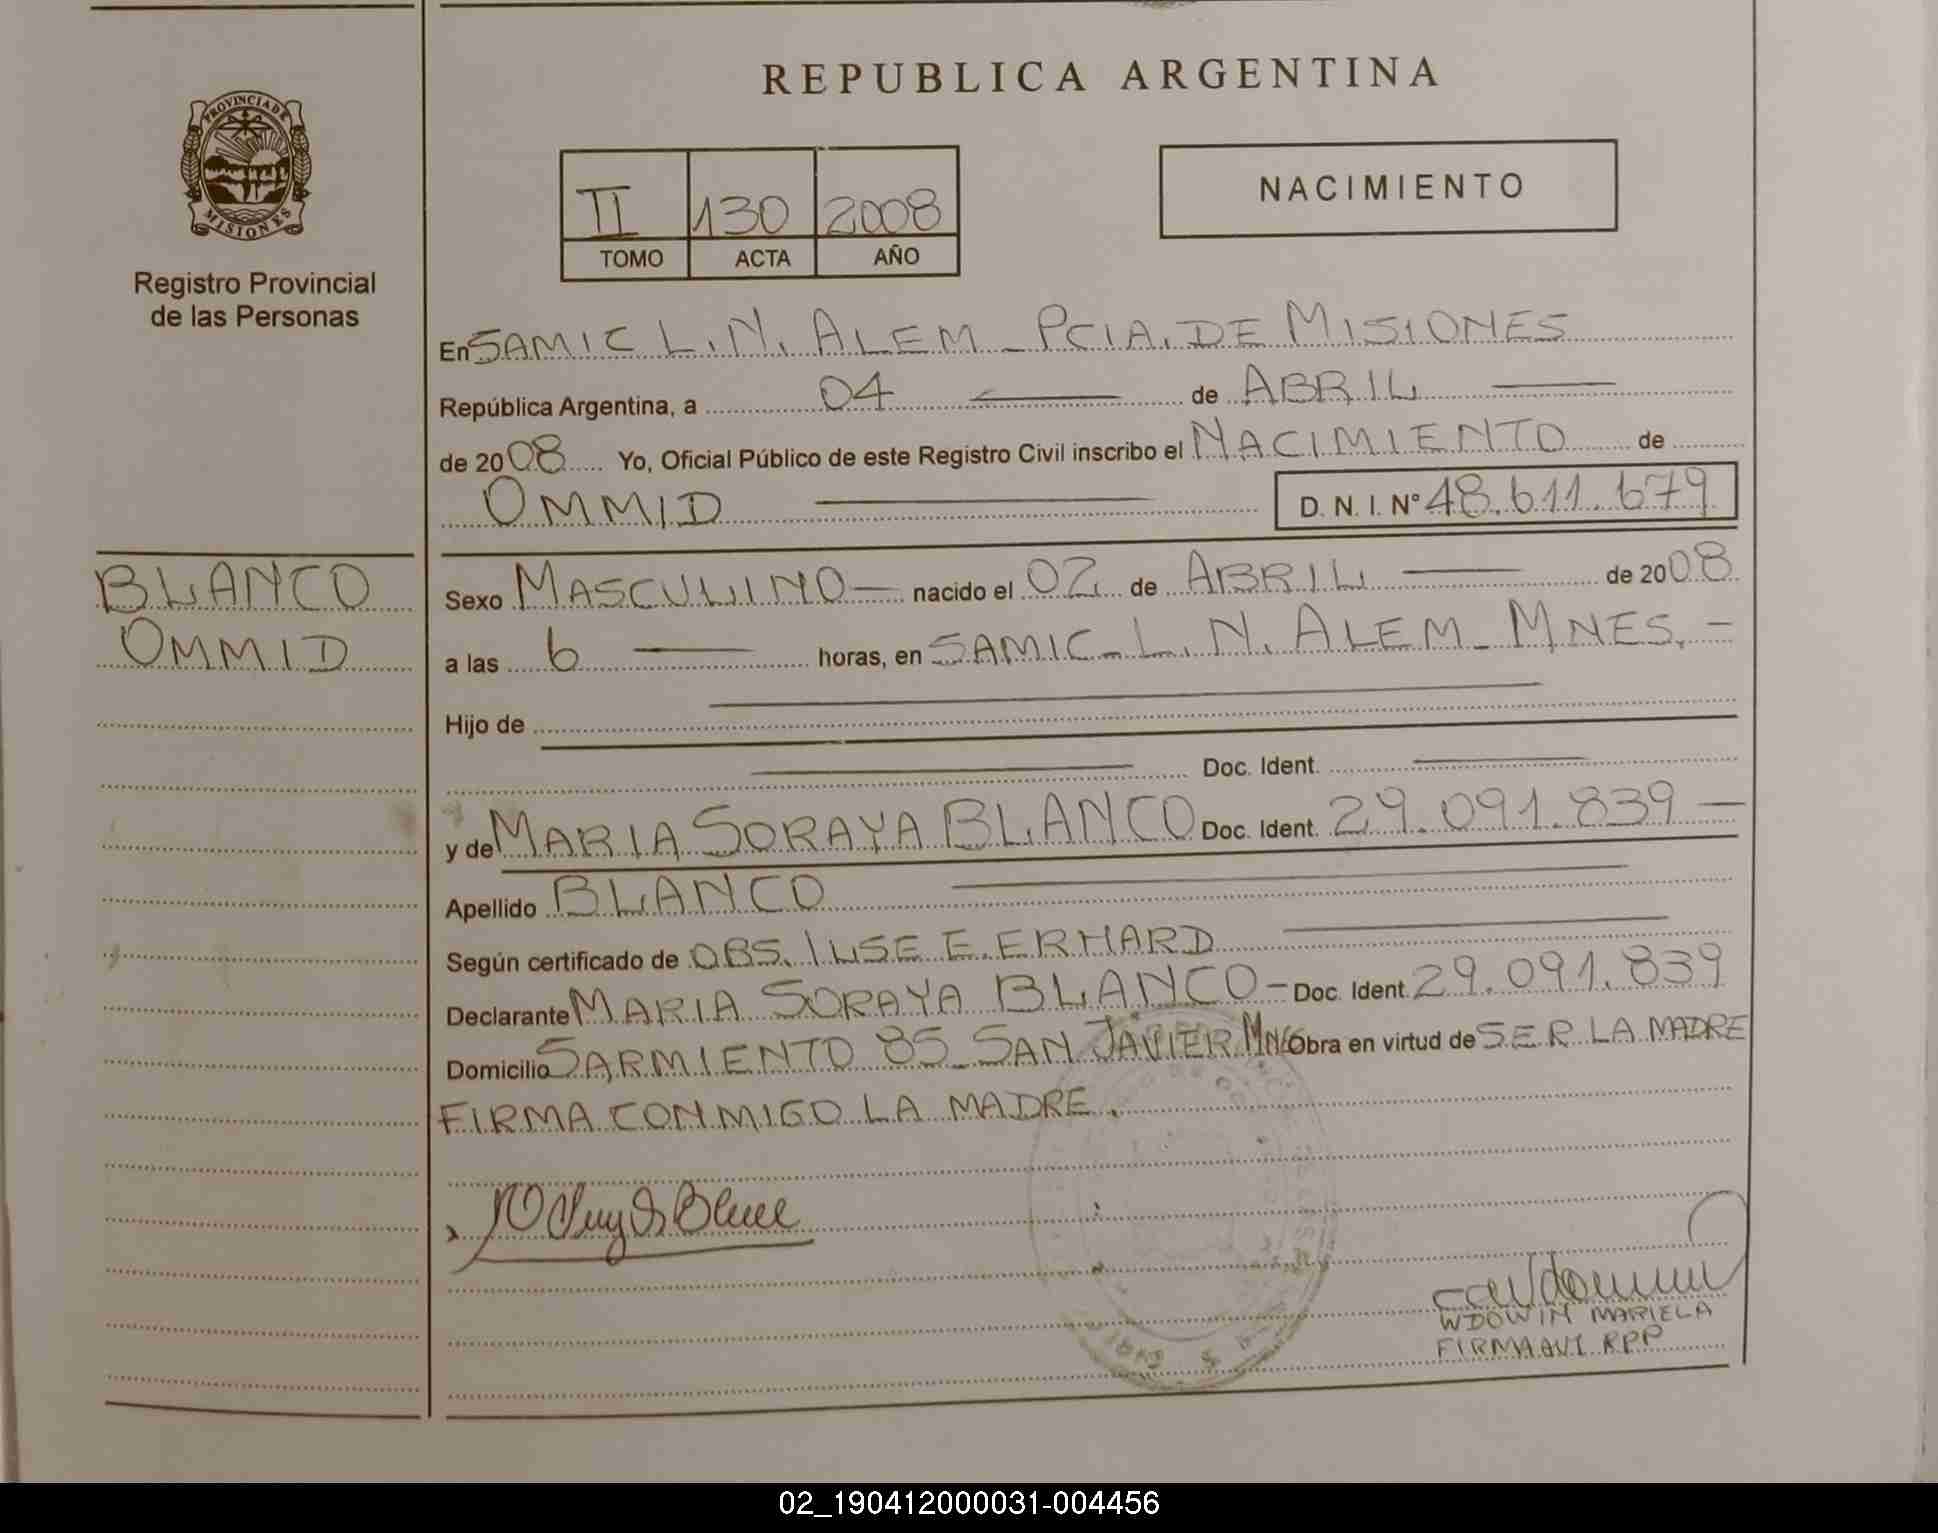 REPUBLICA ARGENTINA
PROVINCIA DE
MISIONES
Registro Provincial
de las Personas
II 130 2008
TOMO ACTA AÑO
NACIMIENTO
En SAMIC L.N. ALEM - PCIA. DE MISIONES
República Argentina, a 04 de ABRIL
de 2008 Yo, Oficial Público de este Registro Civil inscribo el NACIMIENTO de
OMMID D. N. I. N° 48.611.679
BLANCO
OMMID
Sexo MASCULINO nacido el 02 de ABRIL de 2008
a las 6 horas, en SAMIC - L.N. ALEM - MNES. -
Hijo de
Doc. Ident.
y de MARIA SORAYA BLANCO Doc. Ident. 29.091.839 -
Apellido BLANCO
Según certificado de OBS. ILSE E. ERHARD
Declarante MARIA SORAYA BLANCO - Doc. Ident. 29.091.839
Domicilio SARMIENTO 85 - SAN JAVIER Obra en virtud de SER LA MADRE
FIRMA CONMIGO LA MADRE.
WDOWIN MARIELA
RPP
02_190412000031-004456